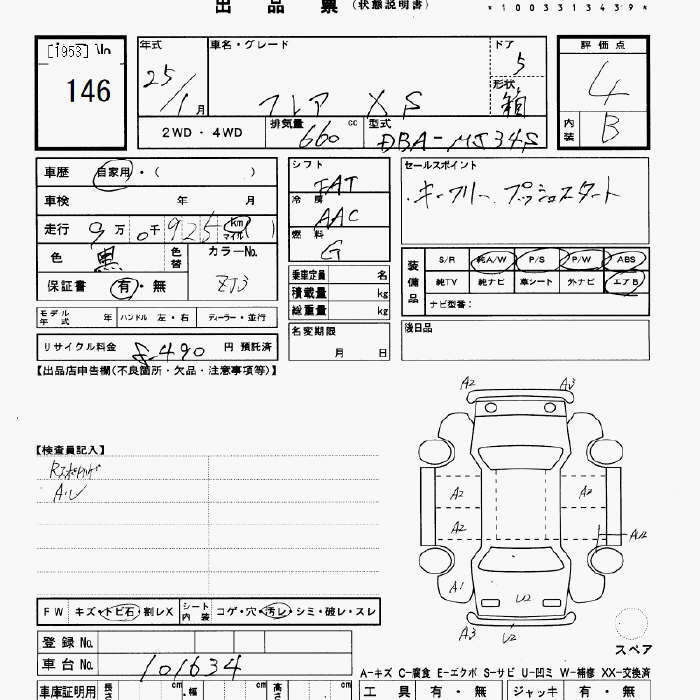 出品票（状態説明書）
*1003313439*
146
年式 車名・グレード ドア 評価点
25/1月 フレア XS 5 4
形状 箱
2WD・4WD 排気量 660 cc 型式 DBA-MJ34S 内装 B
車歴 自家用・（ ） シフト FAT セールスポイント
車検 年 月 冷房 AAC キーフリー プッシュスタート
走行 9万0千925 km マイル 燃料 G
色 黒 色替 カラーNo. ZJ3
保証書 有・無
装備品 S/R 純A/W P/S P/W ABS
純TV 純ナビ 革シート 外ナビ エアB
ナビ型番：
乗車定員 名
積載量 kg
総重量 kg
モデル年式 年 ハンドル 左・右 ディーラー・並行
名変期限 月 日
後日品
リサイクル料金 8,490 円 預託済
【出品店申告欄(不良箇所・欠品・注意事項等)】
【検査員記入】
A2 A3
A2 A2
A2
A1 U2
A3 U2
スペア
FW キズ・トビ石・割レX シート内装 コゲ・穴・汚レ・シミ・破レ・スレ
登録No.
車台No. 101634
A-キズ C-腐食 E-エクボ S-サビ U-凹ミ W-補修 XX-交換済
車庫証明用 長さ cm ・幅 cm 高さ cm 工具 有・無 ジャッキ 有・無